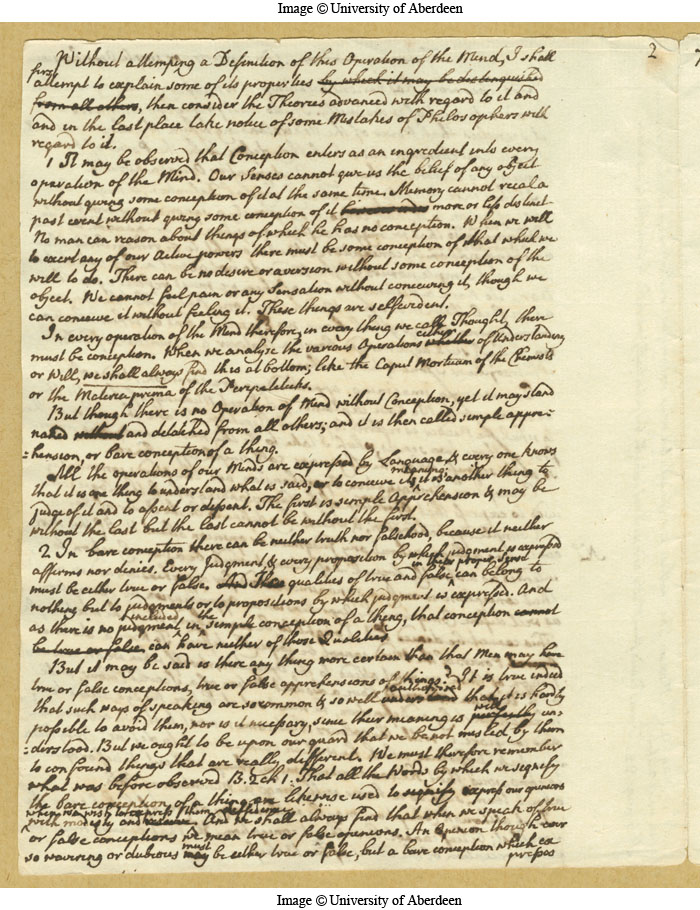 Image © University of Aberdeen
2
Without attempting a Definition of this Operation of the Mind, I shall
first
attempt to explain some of its properties by which it may be distinguished
from all others, then consider the Theories advanced with regard to it and
and in the last place take notice of some Mistakes of Philosophers with
regard to it.
1 It may be observed that Conception enters as an ingredient into every
operation of the Mind. Our Senses cannot give us the belief of any object
without giving some conception of it at the same time. Memory cannot recal a
past event without giving some conception of it more or less distinct
No man can reason about things of which he has no conception. When we will
to exert any of our Active powers there must be some conception of that which we
will to do. There can be no desire or aversion without some conception of the
object. We cannot feel pain or any Sensation without conceiving it, though we
can conceive it without feeling it. These things are selfevident.
In every operation of the Mind therefore, in every thing we call Thought, there
must be conception. When we analyse the various Operations either of Understanding
or Will, we shall always find this at bottom; like the Caput Mortuum of the Chemists
or the Materia prima of the Peripateticks.
But though there is no Operation of Mind without Conception, yet it may stand
naked without and detached from all others; and it is then called simple appre-
hension, or bare conception of a thing.
All the operations of our Minds are expressed by Language & every one knows
meaning;
that it is one thing to understand what is said, or to conceive its it is another thing to
judge of it and to assent or dissent. The first is simple Apprehension & may be
without the last but the last cannot be without the first.
2 In bare conception there can be neither truth nor falsehood, because it neither
affirms nor denies. Every Judgment & every proposition by which judgment is expressed
in their proper sense
must be either true or false. And The qualities of true and false can belong to
nothing but to judgments or to propositions by which judgment is expressed. And
included the
as there is no judgment in simple conception of a thing, that conception cannot
be true or false, can have neither of those Qualities
But it may be said is there any thing more certain than that Men may have
true or false conceptions, true or false apprehensions of things? It is true indeed
authorized
that such ways of speaking are so common & so well understood that it is hardly
well
possible to avoid them, nor is it necessary, since their meaning is perfectly un-
derstood. But we ought to be upon our guard that we be not misled by them
to confound things that are really different. We must therefore remember
what was before observed B. 2 ch 1. That all the Words by which we signify
the bare conception of a thing, are likewise used to signify express our opinions
when we wish to express them
with modesty and And we shall always find that when we speak of true
or false conceptions we mean true or false opinions. An Opinion though ever
must
so wavering or dubious may be either true or false, but a bare conception which ex
presses
Image © University of Aberdeen